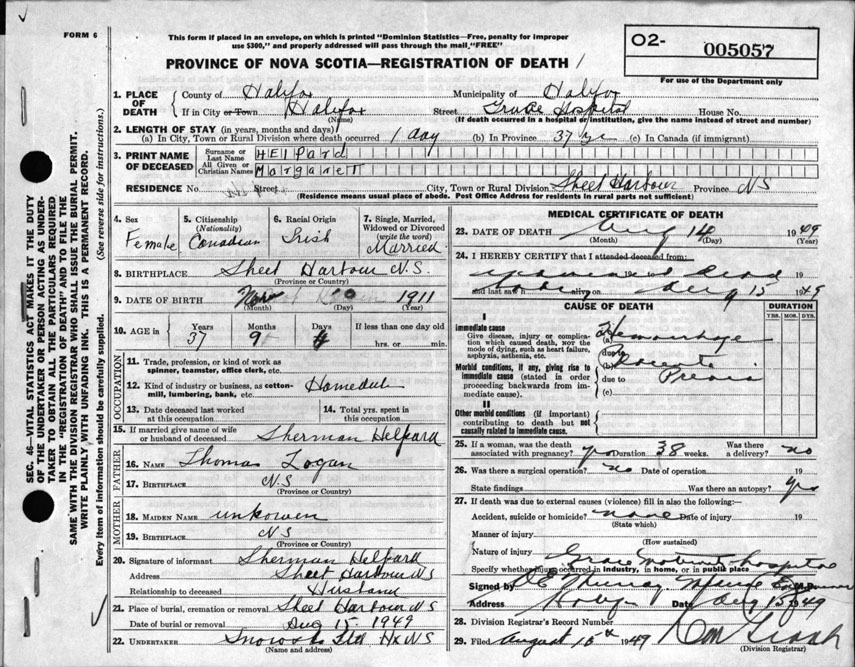 FORM 6
This form if placed in an envelope, on which is printed "Dominion Statistics—Free, penalty for improper
use $300," and properly addressed will pass through the mail "FREE"
PROVINCE OF NOVA SCOTIA—REGISTRATION OF DEATH
O2- 005057
For use of the Department only
1. PLACE OF DEATH County of Halifax Municipality of Halifax
If in City or Town Halifax Street Grace Hospital House No.
(Name) (If death occurred in a hospital or institution, give the name instead of street and number)
2. LENGTH OF STAY (in years, months and days)
(a) In City, Town or Rural Division where death occurred 1 day (b) In Province 37 yr (c) In Canada (if immigrant)
3. PRINT NAME OF DECEASED Surname or Last Name HElPard
All Given or Christian Names MargareTT
RESIDENCE No. Street City, Town or Rural Division Sheet Harbour Province NS
(Residence means usual place of abode. Post Office Address for residents in rural parts not sufficient)
4. Sex Female
5. Citizenship (Nationality) Canadian
6. Racial Origin Irish
7. Single, Married, Widowed or Divorced (write the word) Married
8. BIRTHPLACE Sheet Harbour N.S.
(Province or Country)
9. DATE OF BIRTH 1911
(Month) (Day) (Year)
10. AGE in Years Months Days If less than one day old
37 9
hrs. or min.
OCCUPATION
11. Trade, profession, or kind of work as spinner, teamster, office clerk, etc.
12. Kind of industry or business, as cotton-mill, lumbering, bank, etc.
13. Date deceased last worked at this occupation
14. Total yrs. spent in this occupation
15. If married give name of wife or husband of deceased Sherman Helpard
FATHER
16. NAME Thomas Logan
17. BIRTHPLACE N.S
(Province or Country)
MOTHER
18. MAIDEN NAME unkowen
19. BIRTHPLACE NS
(Province or Country)
20. Signature of informant Sherman Helpard
Address Sheet Harbour NS
Relationship to deceased Husband
21. Place of burial, cremation or removal Sheet Harbour NS
Date of burial or removal Aug 15. 1949
22. UNDERTAKER Snows Ltd Hx NS
(Name and address)
MEDICAL CERTIFICATE OF DEATH
23. DATE OF DEATH Aug 14 1949
(Month) (Day) (Year)
24. I HEREBY CERTIFY that I attended deceased from:
and last saw alive on Aug 15 1949
CAUSE OF DEATH DURATION
YRS. MOS. DYS.
I
Immediate cause
Give disease, injury or complication which caused death, not the mode of dying, such as heart failure, asphyxia, asthenia, etc.
(a) Hemorrhage
due to
Morbid conditions, if any, giving rise to immediate cause (stated in order proceeding backwards from immediate cause).
(b) Placenta
due to Previa
(c)
II
Other morbid conditions (if important) contributing to death but not causally related to immediate cause.
25. If a woman, was the death associated with pregnancy? yes Duration 38 weeks. Was there a delivery? no
26. Was there a surgical operation? no Date of operation 19
State findings Was there an autopsy? yes
27. If death was due to external causes (violence) fill in also the following:—
Accident, suicide or homicide? none Date of injury 19
(State which)
Manner of injury
(How sustained)
Nature of injury
Specify whether injury occurred in industry, in home, or in public place
Grace Maternity Hospital
Signed by
Address Date Aug 15 1949
28. Division Registrar's Record Number
29. Filed August 15th 1949
(Division Registrar)
SEC. 46—VITAL STATISTICS ACT MAKES IT THE DUTY
OF THE UNDERTAKER OR PERSON ACTING AS UNDER-
TAKER TO OBTAIN ALL THE PARTICULARS REQUIRED
IN THE "REGISTRATION OF DEATH" AND TO FILE THE
SAME WITH THE DIVISION REGISTRAR WHO SHALL ISSUE THE BURIAL PERMIT.
WRITE PLAINLY WITH UNFADING INK. THIS IS A PERMANENT RECORD.
Every item of information should be carefully supplied. (See reverse side for instructions.)